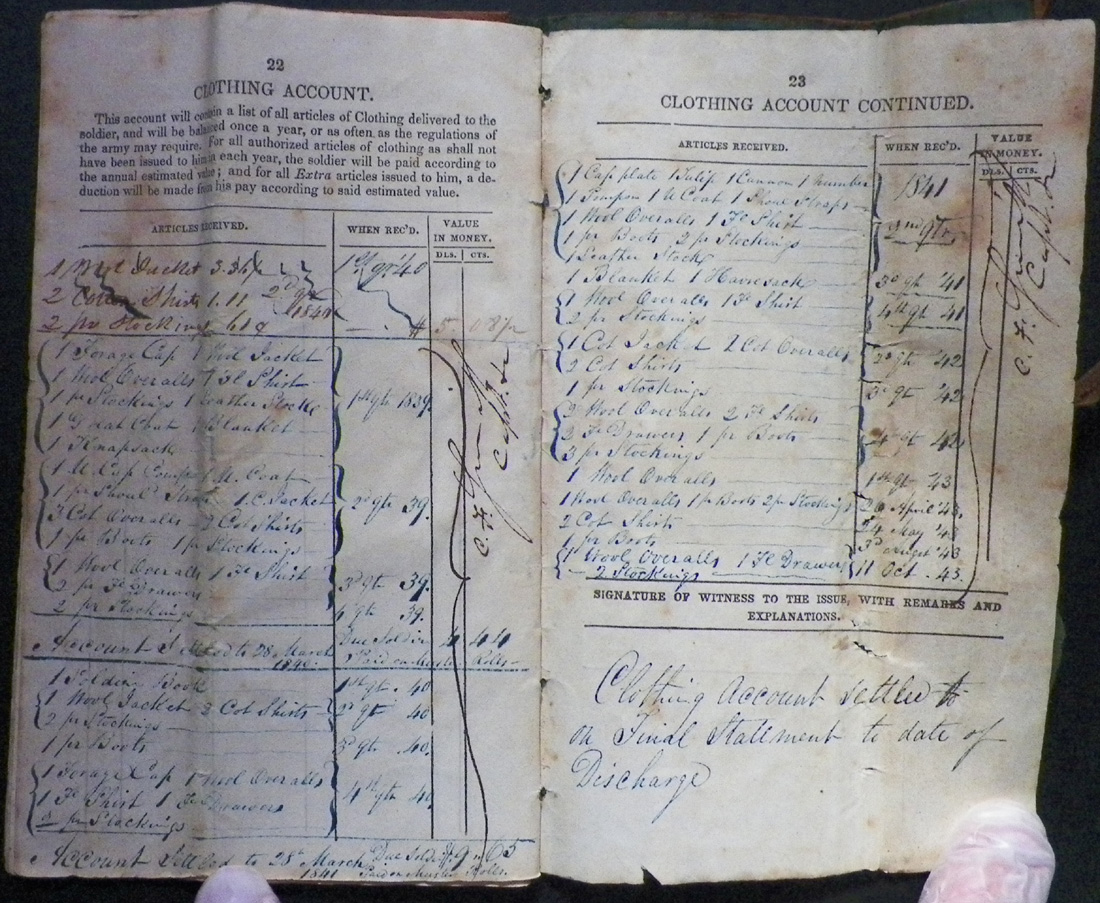 22
CLOTHING ACCOUNT.
This account will contain a list of all articles of Clothing delivered to the
soldier, and will be balanced once a year, or as often as the regulations of
the army may require. For all authorized articles of clothing as shall not
have been issued to him in each year, the soldier will be paid according to
the annual estimated value; and for all Extra articles issued to him, a de-
duction will be made from his pay according to said estimated value.
ARTICLES RECEIVED. WHEN REC'D. VALUE IN MONEY.
DLS. CTS.
1 Jacket 3. 1st qr 40
2 Cotton Shirts 1.11 2d qr 1840
2 pr Stockings 61 5
1 Forage Cap 1 Wool Jacket
1 Wool Overalls 1 Fl Shirt
1 pr Stockings 1 Leather Stock 1st qtr 1839
1 Great Coat 1 Blanket
1 Knapsack
1 U. Cap 1 U. Coat
1 pr Straps 1 C. Jacket
3 Cot Overalls 3 Cot Shirts 2d qtr 39.
1 pr Boots 1 pr Stockings
1 Wool Overalls 1 Fl Shirt
2 pr Fl Drawers 3d qt 39.
2 pr Stockings 4 qt 39.
Account Settled to 28 March 1840. Due Soldier 4 44
Paid on Muster Rolls
1 Soldiers Book 1st qt. 40
1 Wool Jacket 2 Cot Shirts 2d qt 40
2 pr Stockings
1 pr Boots 3d qtr 40.
1 Forage Cap 1 Wool Overalls
1 Fl Shirt 1 Fl Drawers 4th qtr 40
pr Stockings
Account Settled to 28th March 1841 Due Sold 9 65
Paid on Muster Rolls.
C. F. Capt
23
CLOTHING ACCOUNT CONTINUED.
ARTICLES RECEIVED. WHEN REC'D. VALUE IN MONEY.
DLS. CTS.
1 Cap plate 1 Tulip 1 Cannon 1 number
1 Pompon 1 U Coat 1 Shoul Straps 1841
1 Wool Overalls 1 Fl Shirt 2nd qtr
1 pr Boots 2 pr Stockings
1 Leather Stock
1 Blanket 1 Haversack 3d qt 41
1 Wool Overalls 1 Fl Shirt 4th qt 41
2 pr Stockings
1 Cot Jacket 2 Cot Overalls
2 Cot Shirts 2d qtr '42
1 pr Stockings 3d qt '42
2 Wool Overalls 2 Fl Shirts
2 Fl Drawers 1 pr Boots 4 qt 42
3 pr Stockings
1 Wool Overalls 1st qt '43
1 Wool Overalls 1 pr Boots 2 pr Stockings April '43
2 Cot Shirts 24 May '43
1 pr Boots 3d August '43
1 Wool Overalls 1 Fl Drawers 11 Oct. 43.
2 Stockings
C. F. Capt
SIGNATURE OF WITNESS TO THE ISSUE, WITH REMARKS AND
EXPLANATIONS.
Clothing Account Settled
on Final Statement to date of
Discharge